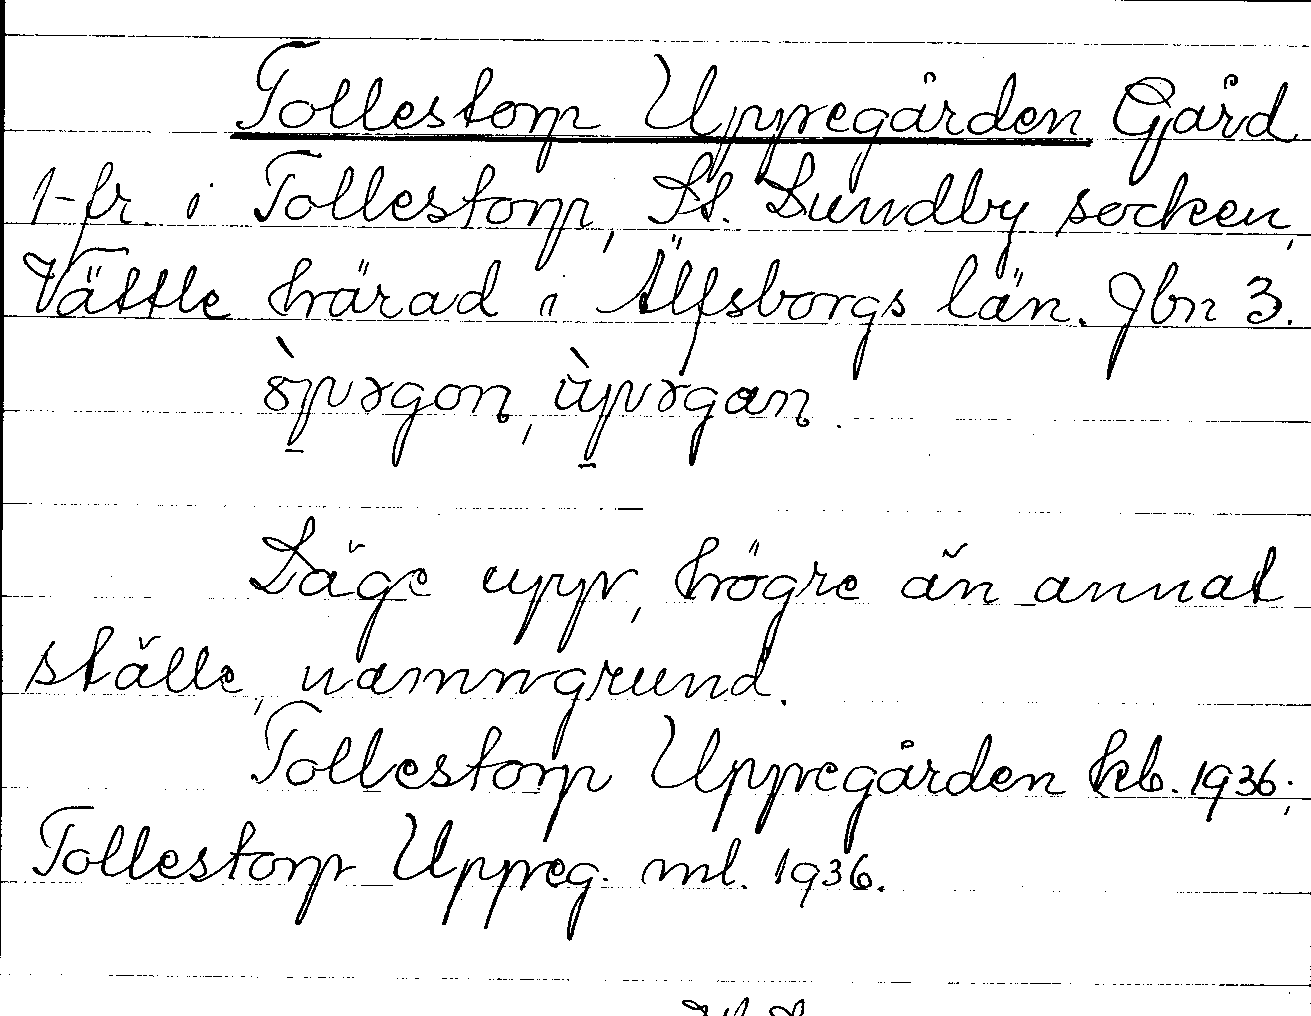 Tollestorp Uppegården Gård
1-fr. i Tollestorp, St. Lundby socken,
Vättle härad i Älfsborgs län. Jbn 3.
Läge upp, högre än annat
ställe, namngrund.
Tollestorp Uppegården kb. 1936;
Tollestorp Uppeg. ml. 1936.